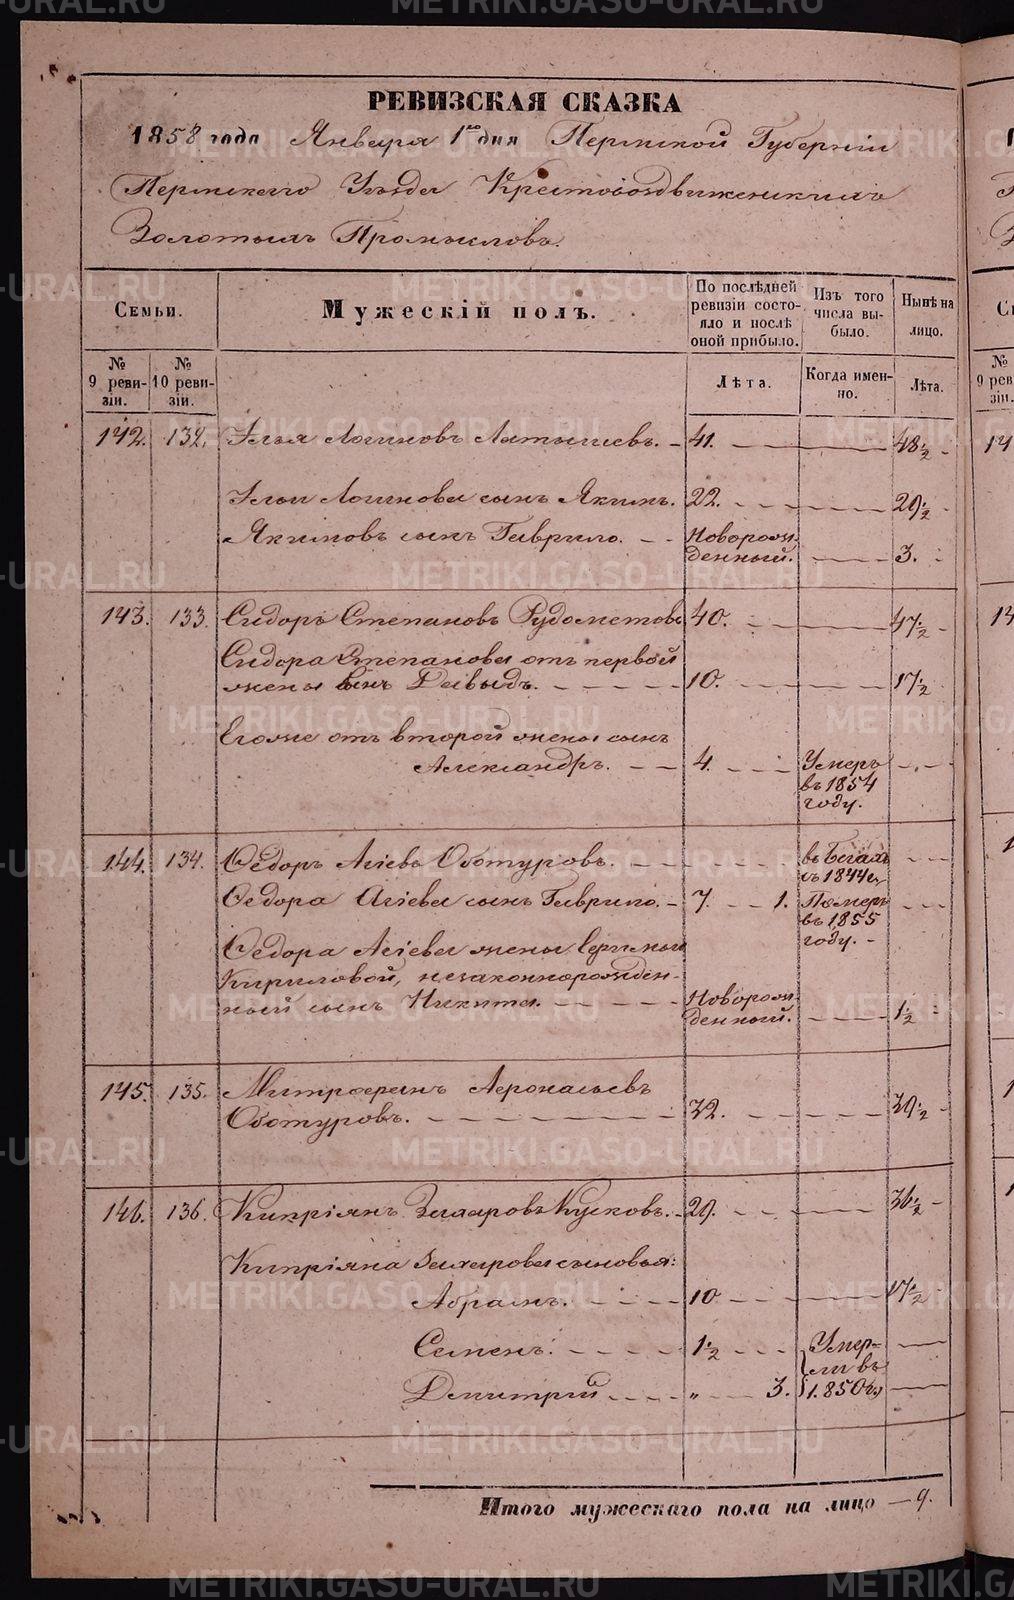 РЕВИЗСКАЯ СКАЗКА
1858 года Января 1го дня Пермской Губерніи
Пермскаго Уѣзда Крестовоздвиженскихъ
Золотыхъ Промысловъ.
Семьи.
Мужескій полъ.
По послѣдней ревизіи состояло и послѣ оной прибыло.
Изъ того числа выбыло.
Нынѣ на лицо.
№ 9 ревизіи.
№ 10 ревизіи.
Лѣта.
Когда именно.
Лѣта.
142. 132. Илья Логиновъ Латышевъ. 41. 48 1/2
Ильи Логинова сынъ Якимъ. 22. 29 1/2
Якимовъ сынъ Гаврило. Новорожденный. 3.
143. 133. Сидоръ Степановъ Рудометовъ 40. 47 1/2
Сидора Степанова отъ первой
жены сынъ Давыдъ. 10. 17 1/2
Егоже отъ второй жены сынъ
Александръ. 4. Умеръ въ 1854 году.
144. 134. Ѳедоръ Агіевъ Обтуровъ. въ бегахъ съ 1844 г.
Ѳедора Агіева сынъ Гаврило. 7. 1. Померъ въ 1855 году.
Ѳедора Агіева жены
Кириловой, незаконнорожден-
ный сынъ Никита. Новорожденный. 1/2
145. 135. Митрофанъ Афонасьевъ
Обтуровъ. 32. 39 1/2
146. 136. Кипріянъ Захаровъ Кусковъ. 29. 36 1/2
Кипріяна Захарова сыновья:
Абрамъ. 10 17 1/2
Семенъ. 1/2 Умерли въ 1850 г.
Дмитрій " 3.
Итого мужескаго пола на лицо — 9.
METRIKI.GASO-URAL.RU